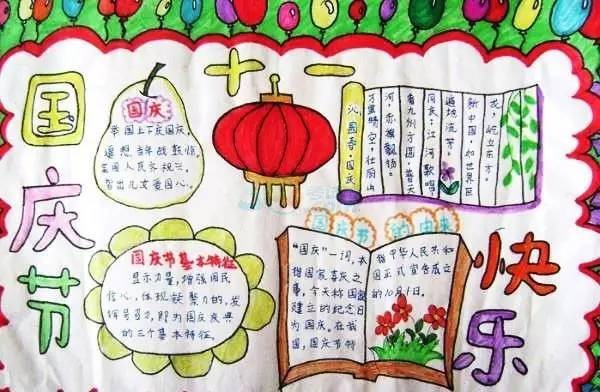 国庆节
十一
国庆
举国上下庆国庆，
遥想当年战鼓惊。
全国人民齐祝兴，
儿女重国心。
沁园春·国庆
万里晴空，壮丽山
河，赤旗飘扬。
看九州方圆，普天
同庆，江河歌唱，
遍地流芳。
新中国，如世界巨
龙，屹立东方。
国庆节基本特征
显示力量，增强国民
信心，体现凝聚力的，发
挥号召力，即为国庆庆典
的三个基本特征。
国庆节的由来
“国庆”一词，本
指国家喜庆之
事，今天称国
建立的纪念日
为国庆。在我
国，国庆节特
指中华人民共和
国正式宣告成立
的10月1日。
快乐